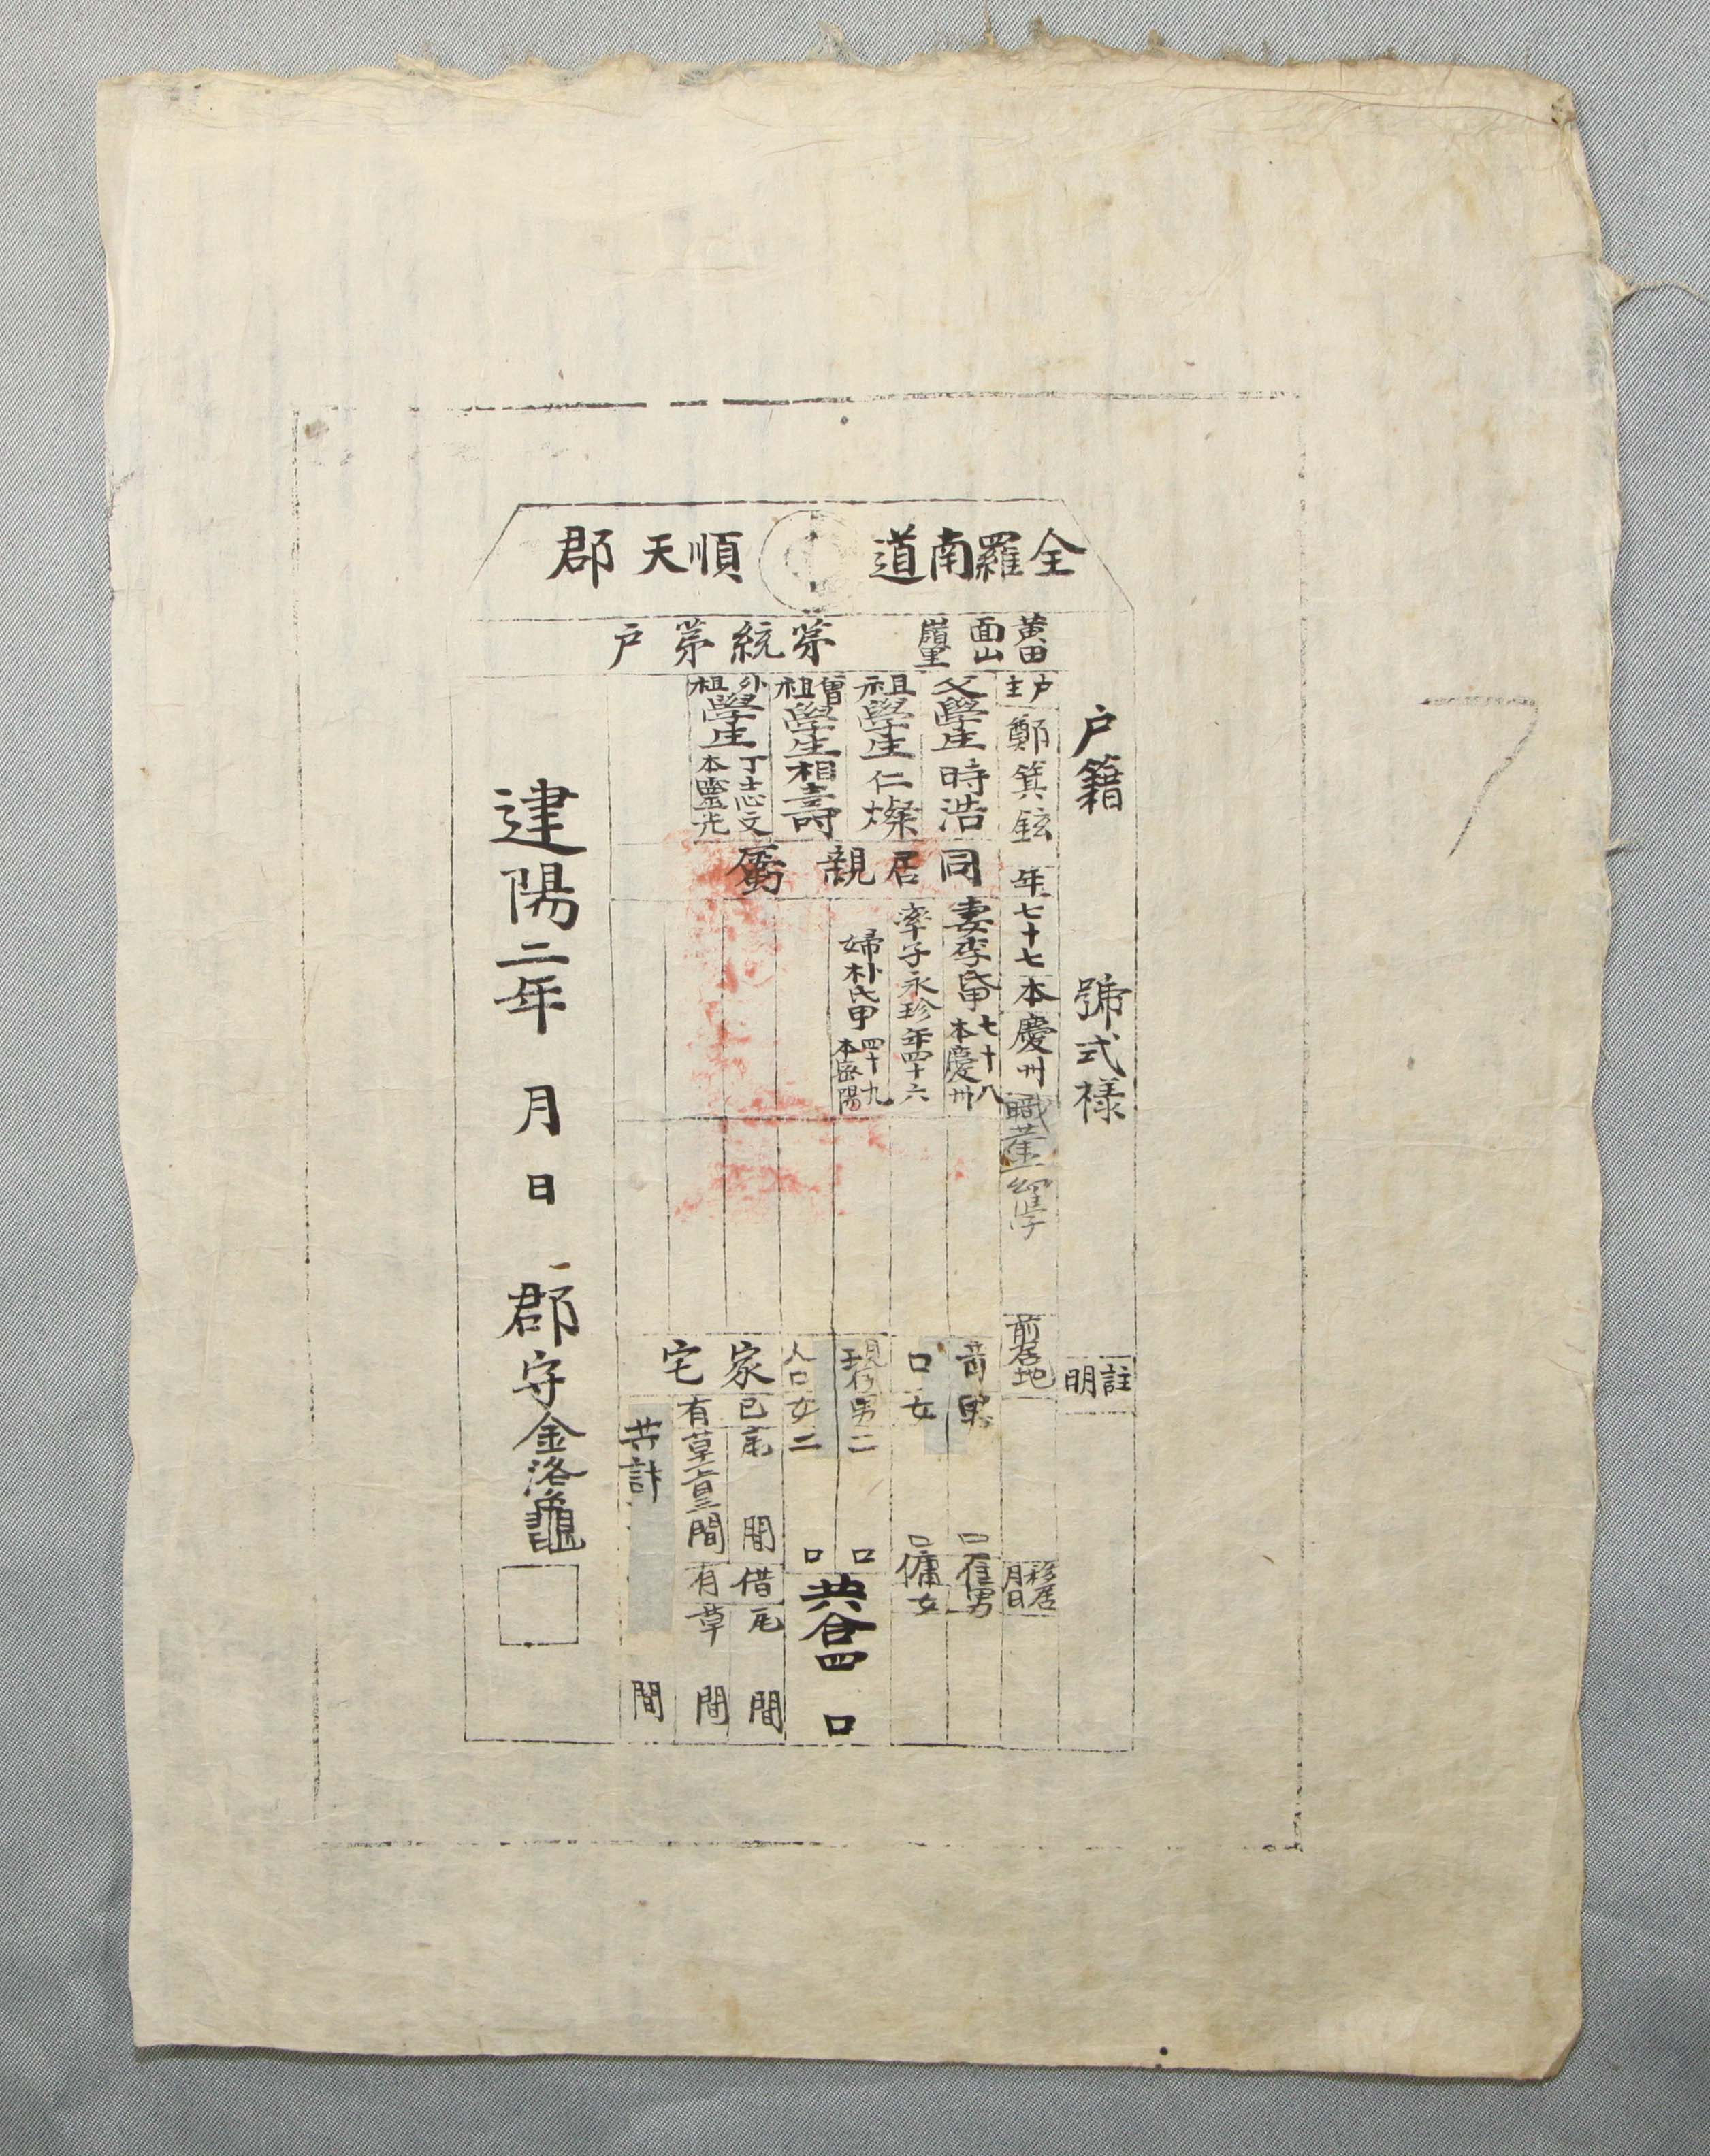 全羅南道 順天郡
戶籍 號式樣 註明
黃田面山嶺里 第統第戶
戶主 鄭箕鉉 年七十七 本慶州 職業 幼學 前居地 移居月日
父學生時浩
祖學生仁燦
曾祖學生相壽
外祖學生丁志文本靈光
同居親屬
妻李氏甲七十八本慶州
率子永珍年四十六
婦朴氏甲四十九本密陽
男 口 雇男
口女 口 傭女
現存男二 口
人口女二 口
共合四 口
家宅
已有 間 草三間
借有瓦 間 草 間
共計 間
建陽二年 月 日 郡守金洛龜